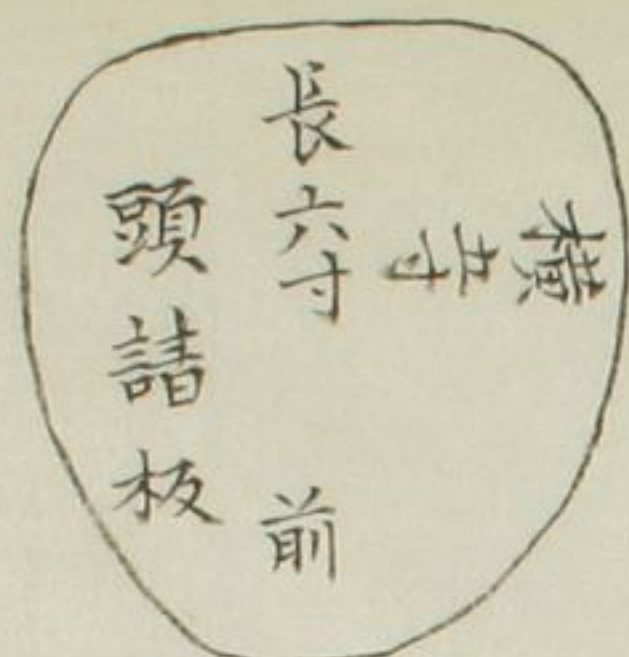 横五寸
長六寸 前
頭詰板